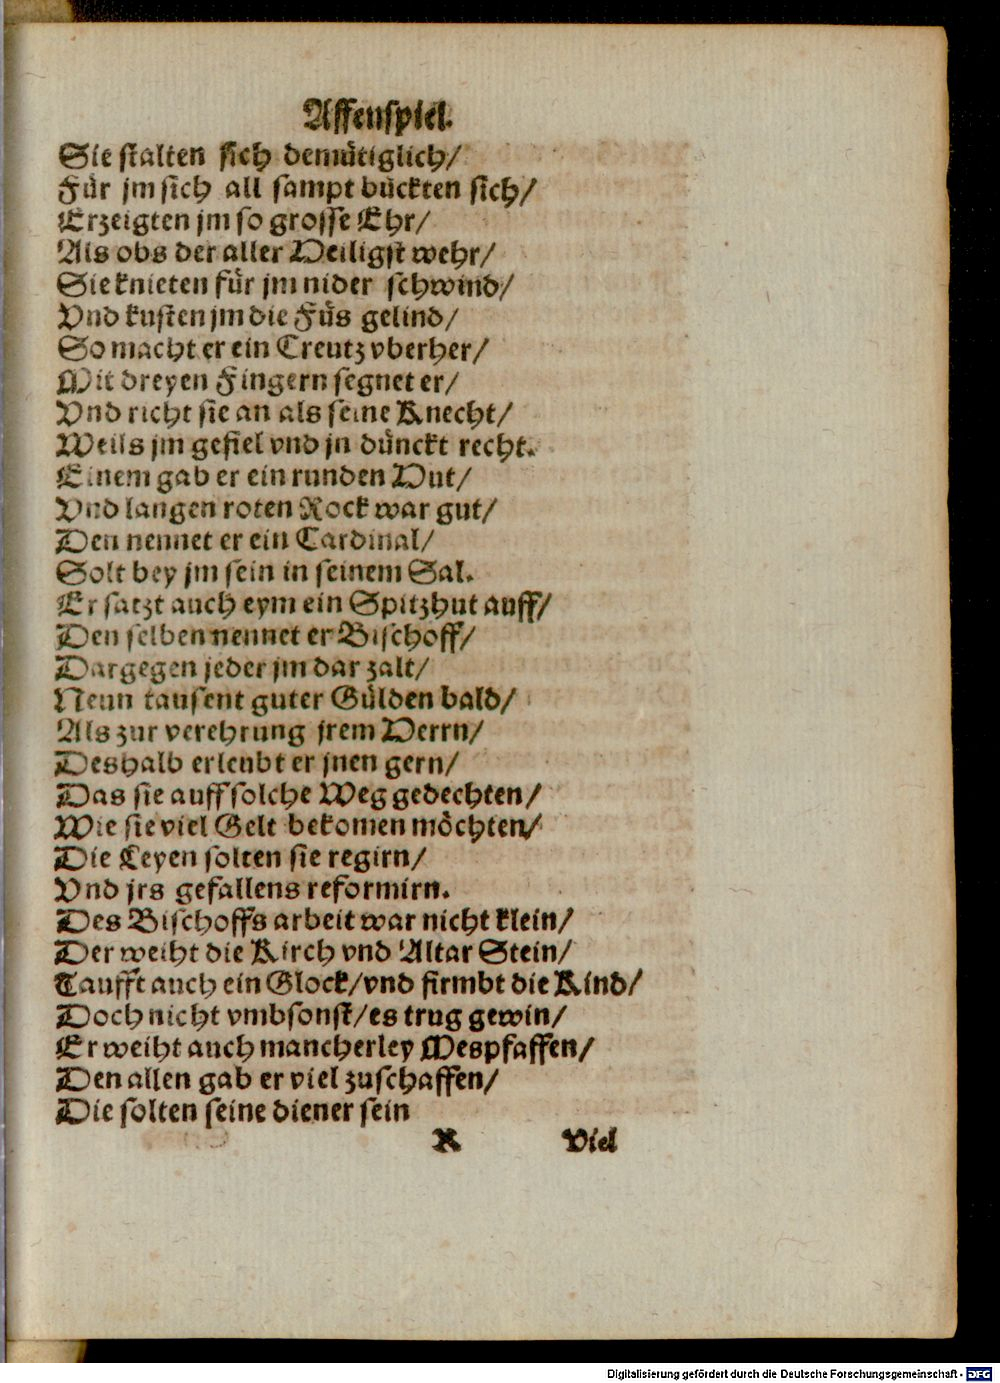 Affenspiel.
Sie stalten sich demütiglich/
Für jm sich all sampt bückten sich/
Erzeigten jm so grosse Ehr/
Als obs der aller Heiligst wehr/
Sie knieten für jm nider schwind/
Vnd kusten jm die Füs gelind/
So macht er ein Creutz vberher/
Mit dreyen Fingern segnet er/
Vnd richt sie an als seine Knecht/
Weils jm gefiel vnd jn dünckt recht.
Einem gab er ein runden Hut/
Vnd langen roten Rock war gut/
Den nennet er ein Cardinal/
Solt bey jm sein in seinem Sal.
Er satzt auch eym ein Spitzhut auff/
Den selben nennet er Bischoff/
Dargegen jeder jm dar zalt/
Neun tausent guter Gülden bald/
Als zur verehrung jrem Herrn/
Deshalb erleubt er jnen gern/
Das sie auff solche Weg gedechten/
Wie sie viel Gelt bekomen möchten/
Die Leyen solten sie regirn/
Vnd jrs gefallens reformirn.
Des Bischoffs arbeit war nicht klein/
Der weiht die Kirch vnd Altar Stein/
Taufft auch ein Glock/vnd firmbt die Kind/
Doch nicht vmbsonst/es trug gewin/
Er weiht auch mancherley Mespfaffen/
Den allen gab er viel zuschaffen/
Die solten seine diener sein
K Viel
Digitalisierung gefördert durch die Deutsche Forschungsgemeinschaft - DFG